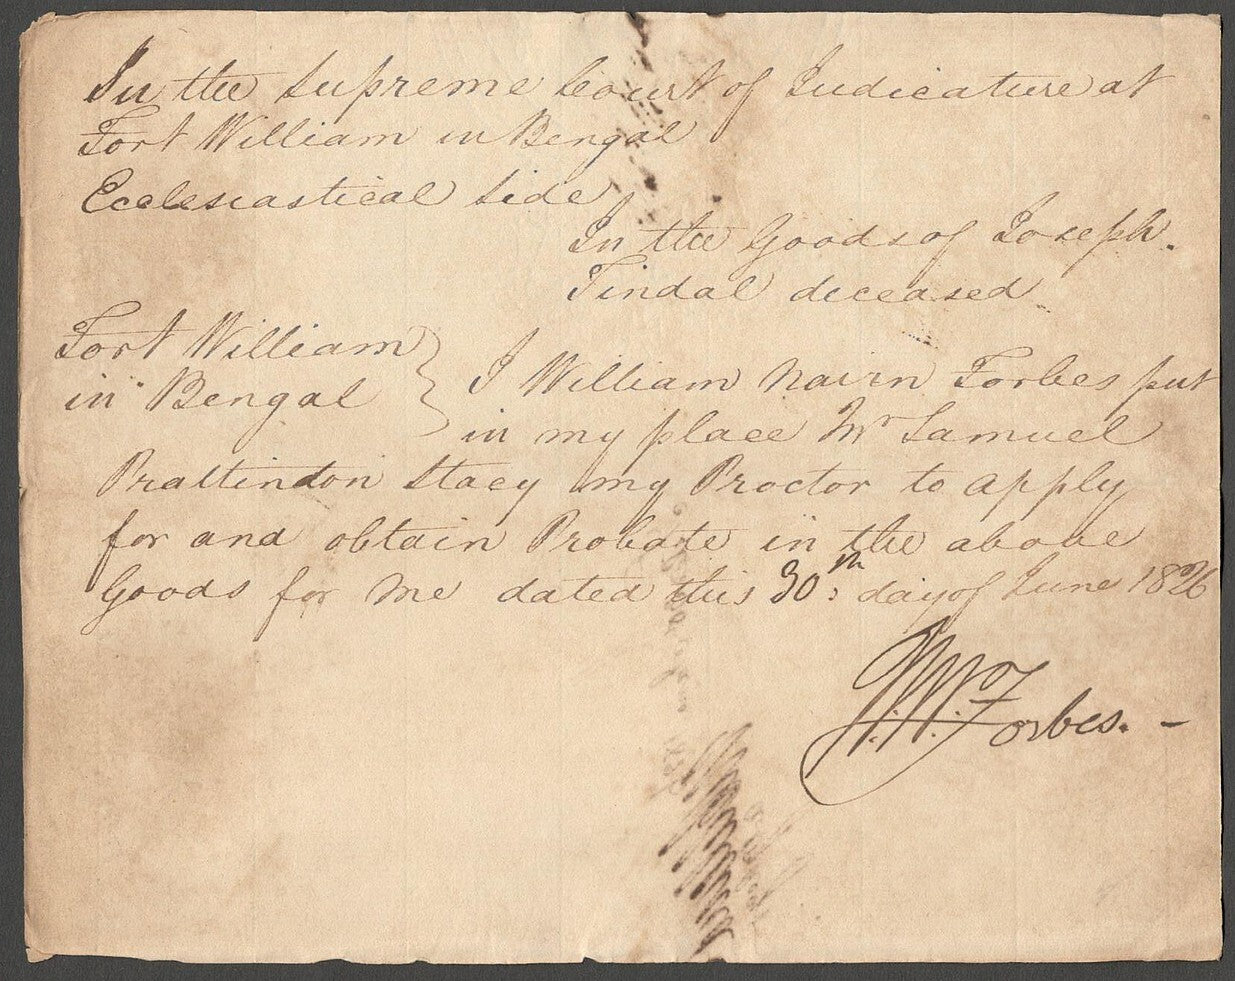 In the Supreme Court of Judicature at
Fort William in Bengal
Ecclesiastical Side
In the Goods of Joseph
Tindal deceased
Fort William
in Bengal
I William Nairn Forbes put
in my place Mr Samuel
Prattindon Stacy my Proctor to apply
for and obtain Probate in the above
Goods for me dated this 30th day of June 1826
W.N. Forbes. -